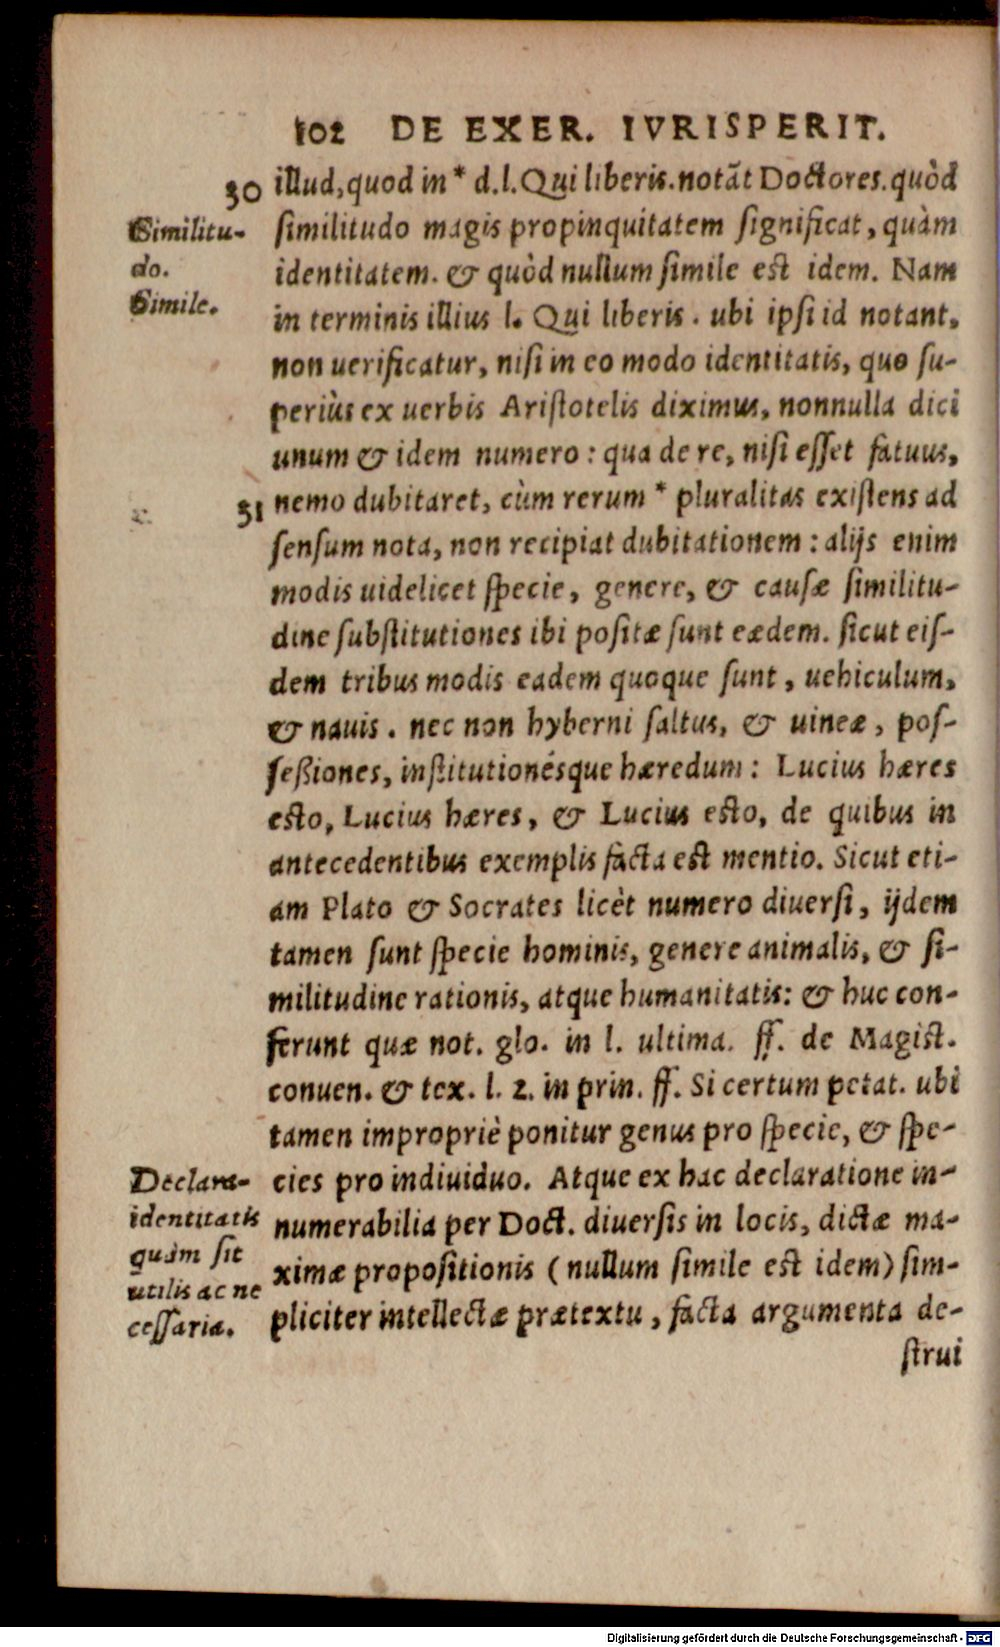 102 DE EXER. IVRISPERIT.
30 illud, quod in * d.l. Qui liberis. notãt Doctores. quòd
Similitu- similitudo magis propinquitatem significat, quàm
do. identitatem. & quòd nullum simile est idem. Nam
Simile. in terminis illius l. Qui liberis. ubi ipsi id notant,
non uerificatur, nisi in eo modo identitatis, quo su-
periùs ex uerbis Aristotelis diximus, nonnulla dici
unum & idem numero: qua de re, nisi esset fatuus,
31 nemo dubitaret, cùm rerum * pluralitas existens ad
sensum nota, non recipiat dubitationem: alijs enim
modis uidelicet specie, genere, & causæ similitu-
dine substitutiones ibi positæ sunt eædem. sicut eis-
dem tribus modis eadem quoque sunt, uehiculum,
& nauis. nec non hyberni saltus, & uineæ, pos-
seßiones, institutionésque hæredum: Lucius hæres
esto, Lucius hæres, & Lucius esto, de quibus in
antecedentibus exemplis facta est mentio. Sicut eti-
am Plato & Socrates licèt numero diuersi, ijdem
tamen sunt specie hominis, genere animalis, & si-
militudine rationis, atque humanitatis: & huc con-
ferunt quæ not. glo. in l. ultima. ff. de Magist.
conuen. & tex. l. 2. in prin. ff. Si certum petat. ubi
tamen impropriè ponitur genus pro specie, & spe-
Declara- cies pro indiuiduo. Atque ex hac declaratione in-
identitatis numerabilia per Doct. diuersis in locis, dictæ ma-
quàm sit ximæ propositionis (nullum simile est idem) sim-
utilis ac ne pliciter intellectæ prætextu, facta argumenta de-
cessaria.
strui
Digitalisierung gefördert durch die Deutsche Forschungsgemeinschaft - DFG